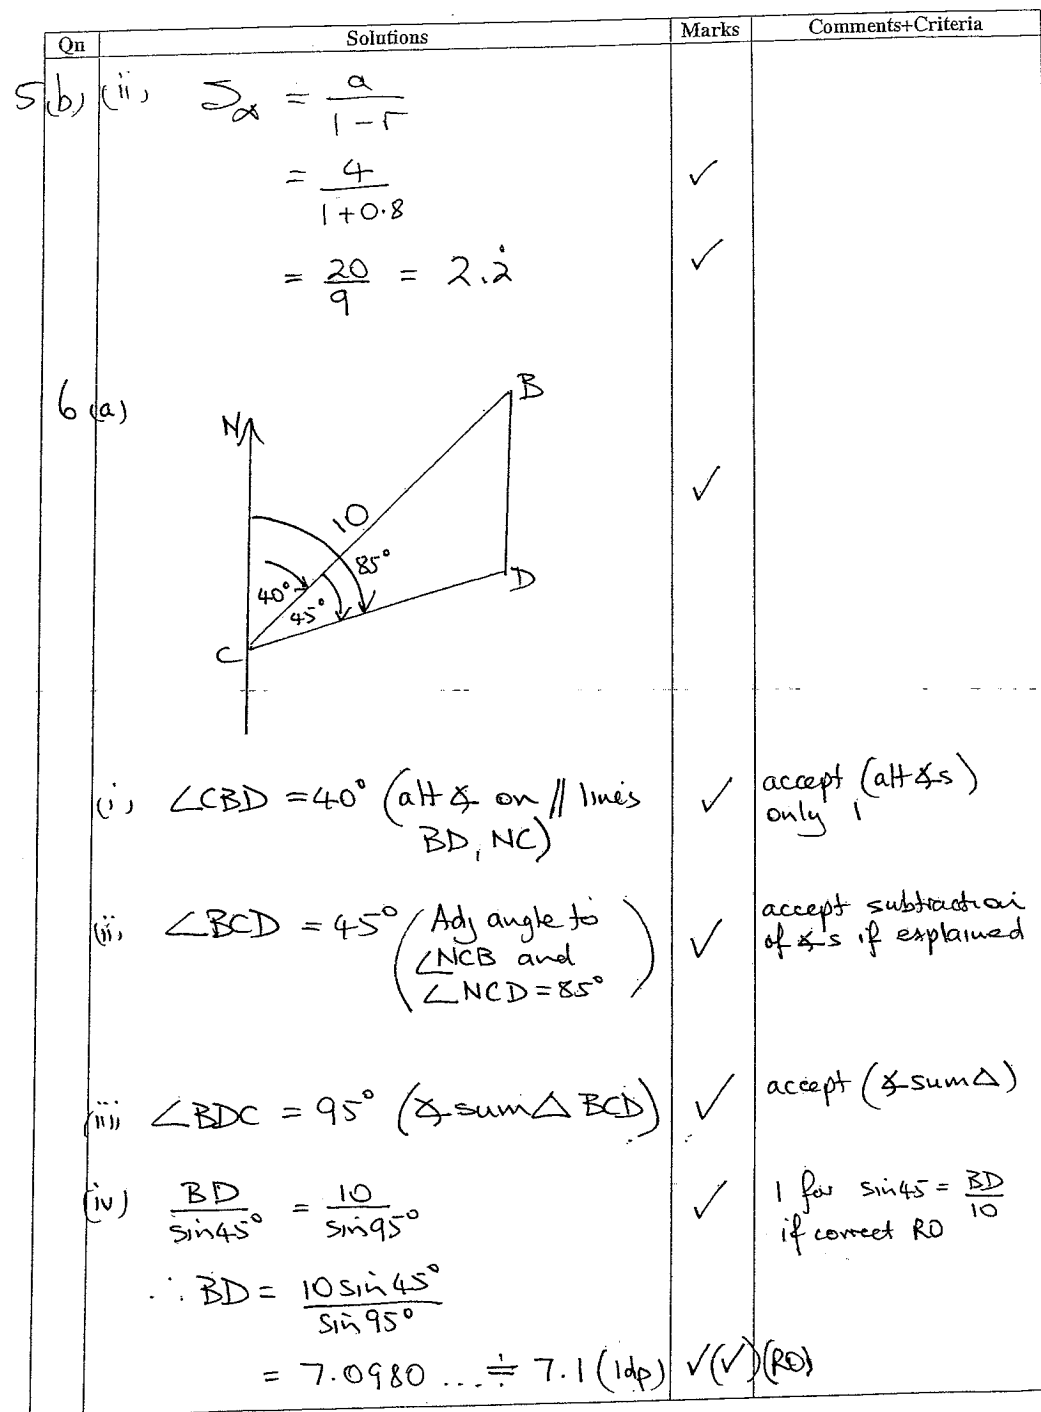 Qn Solutions Marks Comments+Criteria
5(b) (ii) S∝ = a/(1-r)
= 4/(1+0.8) ✓
= 20/9 = 2.2̇ ✓
6(a)
B
N
10 ✓
85°
40°
45°
D
C
(i) ∠CBD = 40° (alt ∡ on // lines ✓ accept (alt ∡s)
BD, NC) only 1
(ii) ∠BCD = 45° (Adj angle to ✓ accept subtraction
∠NCB and of ∡s if explained
∠NCD = 85°)
(iii) ∠BDC = 95° (∡ sum △ BCD) ✓ accept (∡ sum △)
(iv) BD/sin45° = 10/sin95° ✓ 1 for sin45 = BD/10
if correct RO
∴ BD = 10 sin 45°/sin 95°
= 7.0980 ... ≑ 7.1 (1dp) ✓(✓) (RO)